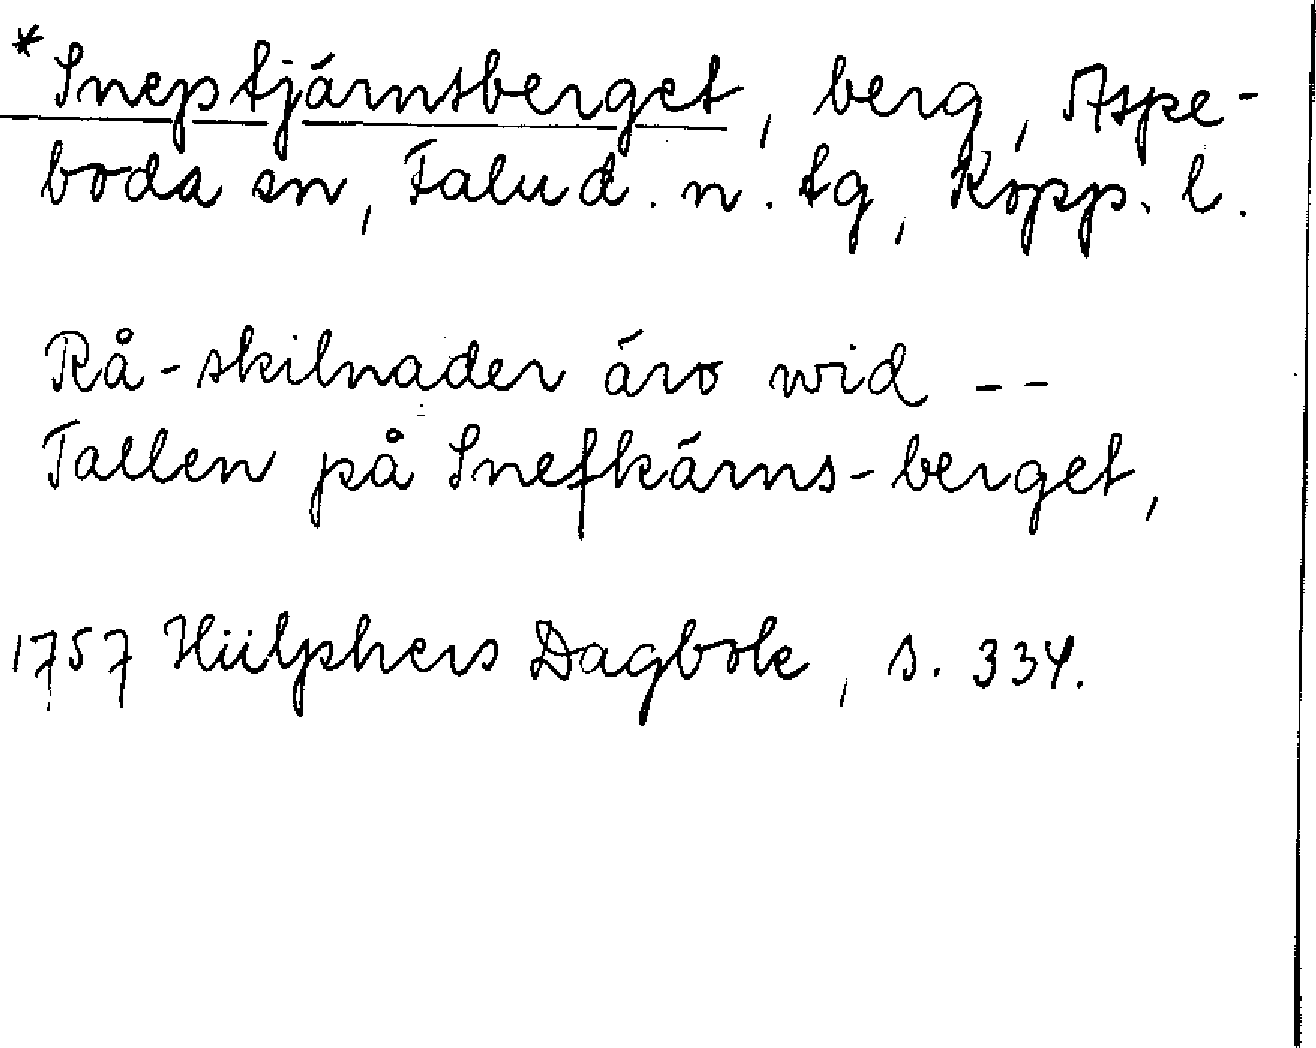 *Sneptjärnsberget, berg, Aspe-
boda sn, Falu d. n. tg, Kopp. l.
Rå-skilnader äro wid --
Tallen på Snefkärns-berget,
1757 Hülphers Dagbok, s. 334.